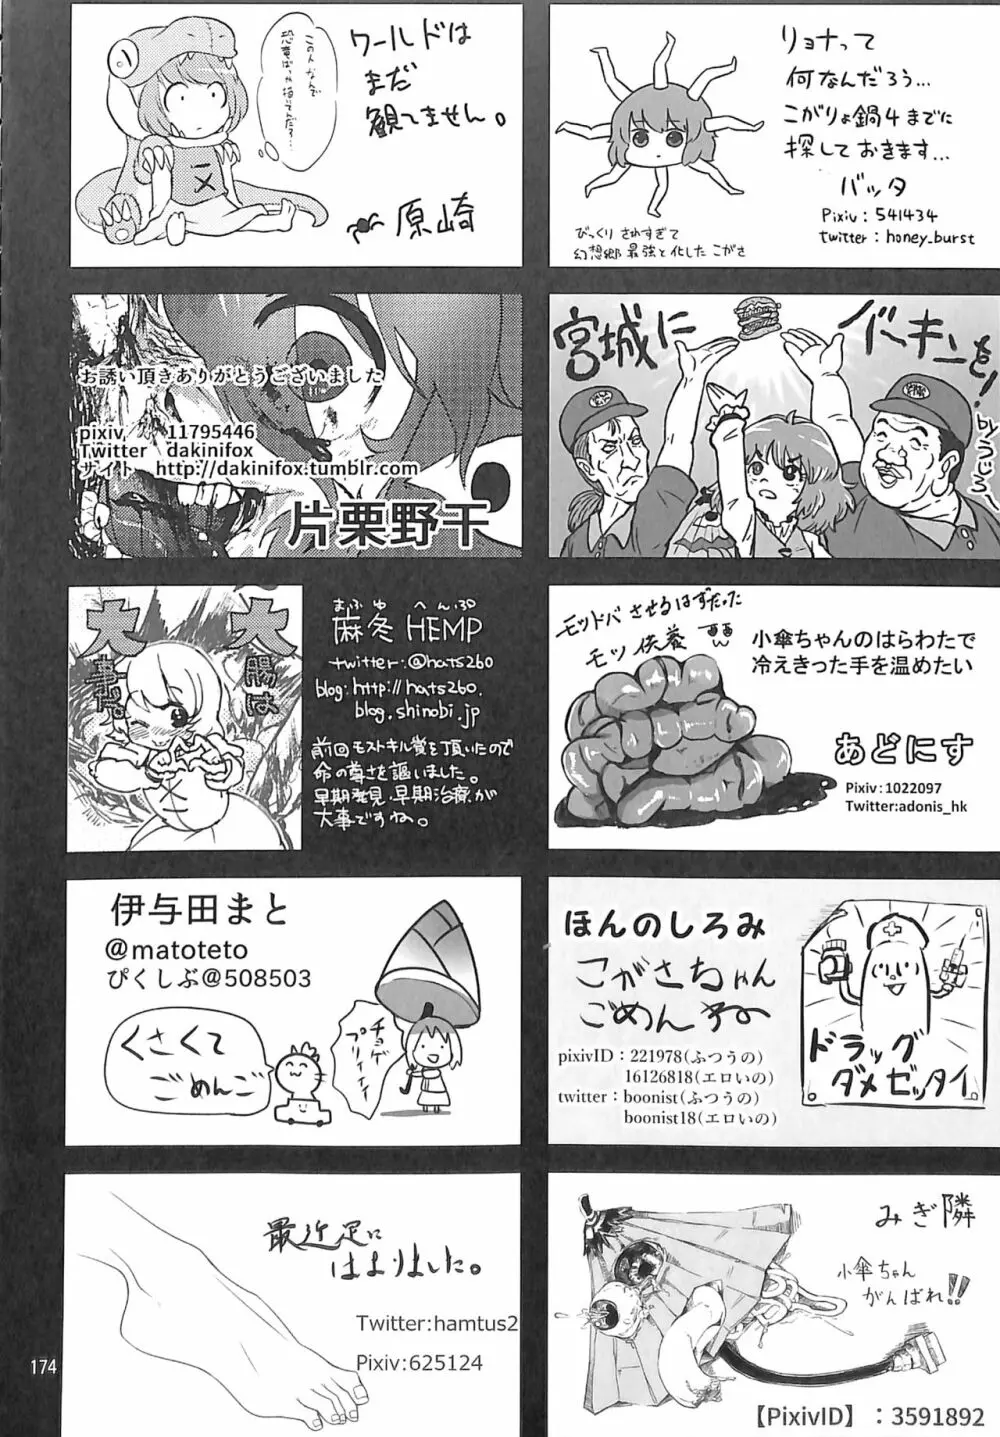 ワールドは
まだ
観てません。
原崎
このんなんで
恐竜ばっか描いてんだろ…
リョナって
何なんだろう…
こがりょ鍋4までに
探しておきます…
バッタ
Pixiv : 541434
twitter : honey_burst
びっくりされすぎて
幻想郷最強と化したこがさ
お誘い頂きありがとうございました
pixiv 11795446
Twitter dakinifox
サイト http://dakinifox.tumblr.com
片栗野干
宮城に
バーキンを!
byうつじろー
大腸は
大事だ。
まふゆ へんぷ
麻冬 HEMP
twitter:@hats260
blog:http://hats260.
blog.shinobi.jp
前回モストキル賞を頂いたので
命の尊さを謳いました。
早期発見、早期治療が
大事ですね。
モッドバさせるはずだった
モツ供養
小傘ちゃんのはらわたで
冷えきった手を温めたい
あどにす
Pixiv:1022097
Twitter:adonis_hk
伊与田まと
@matoteto
ぴくしぶ@508503
くさくて
ごめんご
チョゲ
プリイイイ
ほんのしろみ
こがさちゃん
ごめんネ〜
pixivID：221978(ふつうの)
16126818(エロいの)
twitter：boonist(ふつうの)
boonist18(エロいの)
ドラッグ
ダメゼッタイ
最近足に
はまりました。
Twitter:hamtus2
Pixiv:625124
みぎ隣
小傘ちゃん
がんばれ!!
【PixivID】：3591892
174